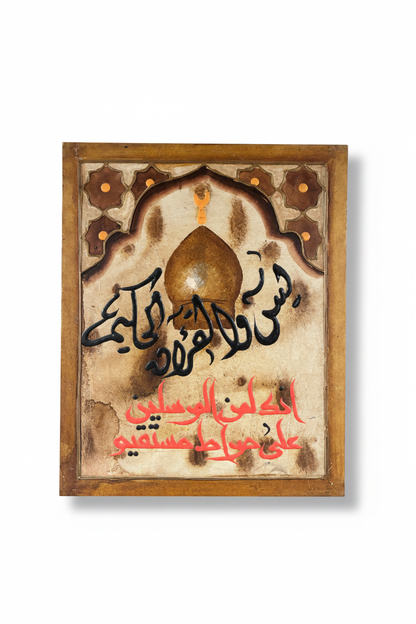 يس والقرآن الحكيم
انك لمن المرسلين
على صراط مستقيم